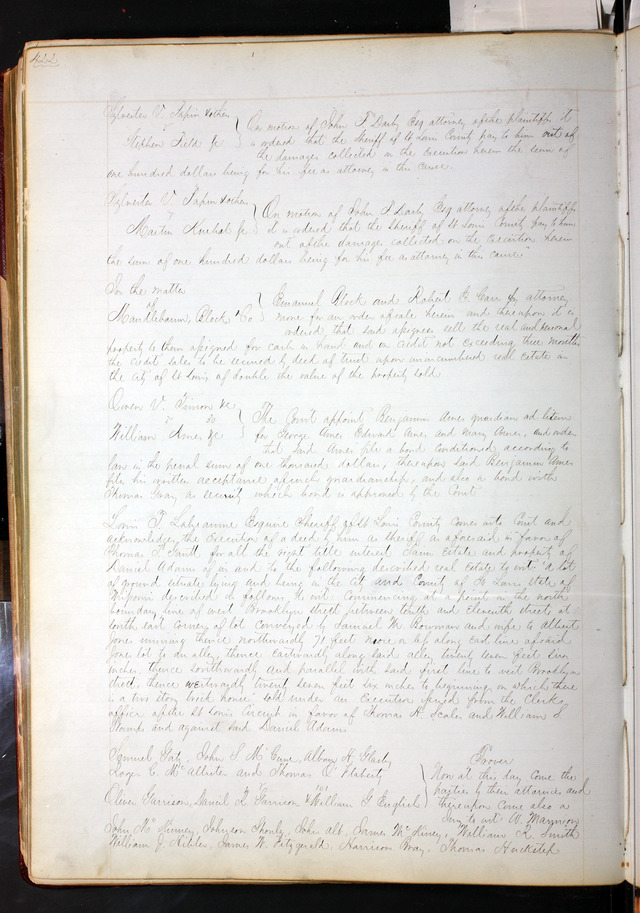 422
Sylvester V. Papin & other
v
Stephen Field Jr } On motion of John F Darby Esq attorney of the plaintiffs it
is ordered that the Sheriff of St Louis County pay to him out of
the damages collected in the execution herein the sum of
one hundred dollars being for his fee as attorney in this cause.
Sylvester V. Papin & other
v
Martin Jr } On motion of John F Darby Esq attorney of the plaintiffs
it is ordered that the Sheriff of St Louis County pay to him
out of the damages collected on the execution herein
the sum of one hundred dollars being for his fee as attorney in this cause
In the matter
of
Mandlebaum, Block & Co } Emanuel Block and Robert E. Carr by attorney
move for an order of sale herein and thereupon it is
ordered that said assignees sell the real and personal
property to them assigned for cash in hand and on credit not exceeding three months
the credit sales to be secured by deed of trust upon unincumbered real estate in
the City of St Louis of double the value of the property sold
Owen V. Timon &c
v 30
William Ames &c } The Court appoint Benjamin Ames guardian ad litem
for George Ames Edward Ames and Mary Ames, and order
that said Ames file a bond conditioned according to
law in the penal sum of one thousand dollars, thereupon said Benjamin Ames
files his written acceptance of such guardianship, and also a bond with
Thomas Gray as security which bond is approved by the Court
Louis T. Labeaume Esquire Sheriff of St Louis County comes into Court and
acknowledges the execution of a deed by him as sheriff as aforesaid in favor of
Thomas T. Gantt for all the right title interest claim estate and property of
Daniel Adams of in and to the following described real estate to wit: "A lot
of ground situate lying and being in the City and County of St Louis State of
Missouri described as follows, to wit: Commencing at a point in the north
boundary line of west Brooklyn street between tenth and Eleventh streets at
south east corner of lot conveyed by Samuel M. Bowman and wife to Albert
Jones running thence northwardly 71 feet more or less along east line aforesaid
Jones lot to an alley, thence eastwardly along said alley twenty seven feet six
inches, thence southwardly and parallel with said first line to west Brooklyn
street, thence westwardly twenty seven feet six inches to beginning on which there
is a two story brick house" sold under an execution issued from the Clerks
office of the St Louis Circuit in favor of Thomas H. and William S
and against said Daniel Adams
Samuel Gaty, John S McCune, Albom H. Glasby
Loger C. McAllister and Thomas O' Flaherty
v 101
Oliver Garrison, Daniel R. Garrison & William G English } Trover
Now at this day come the
parties by their attornies and
thereupon come also a
Jury to wit: W. Mannion
John McKinney, Johnson Shonly, John Alt, James McKiney, William R. Smith
William J. Hibler, James W. Fitzgerald, Harrison Gray, Thomas Huckstep